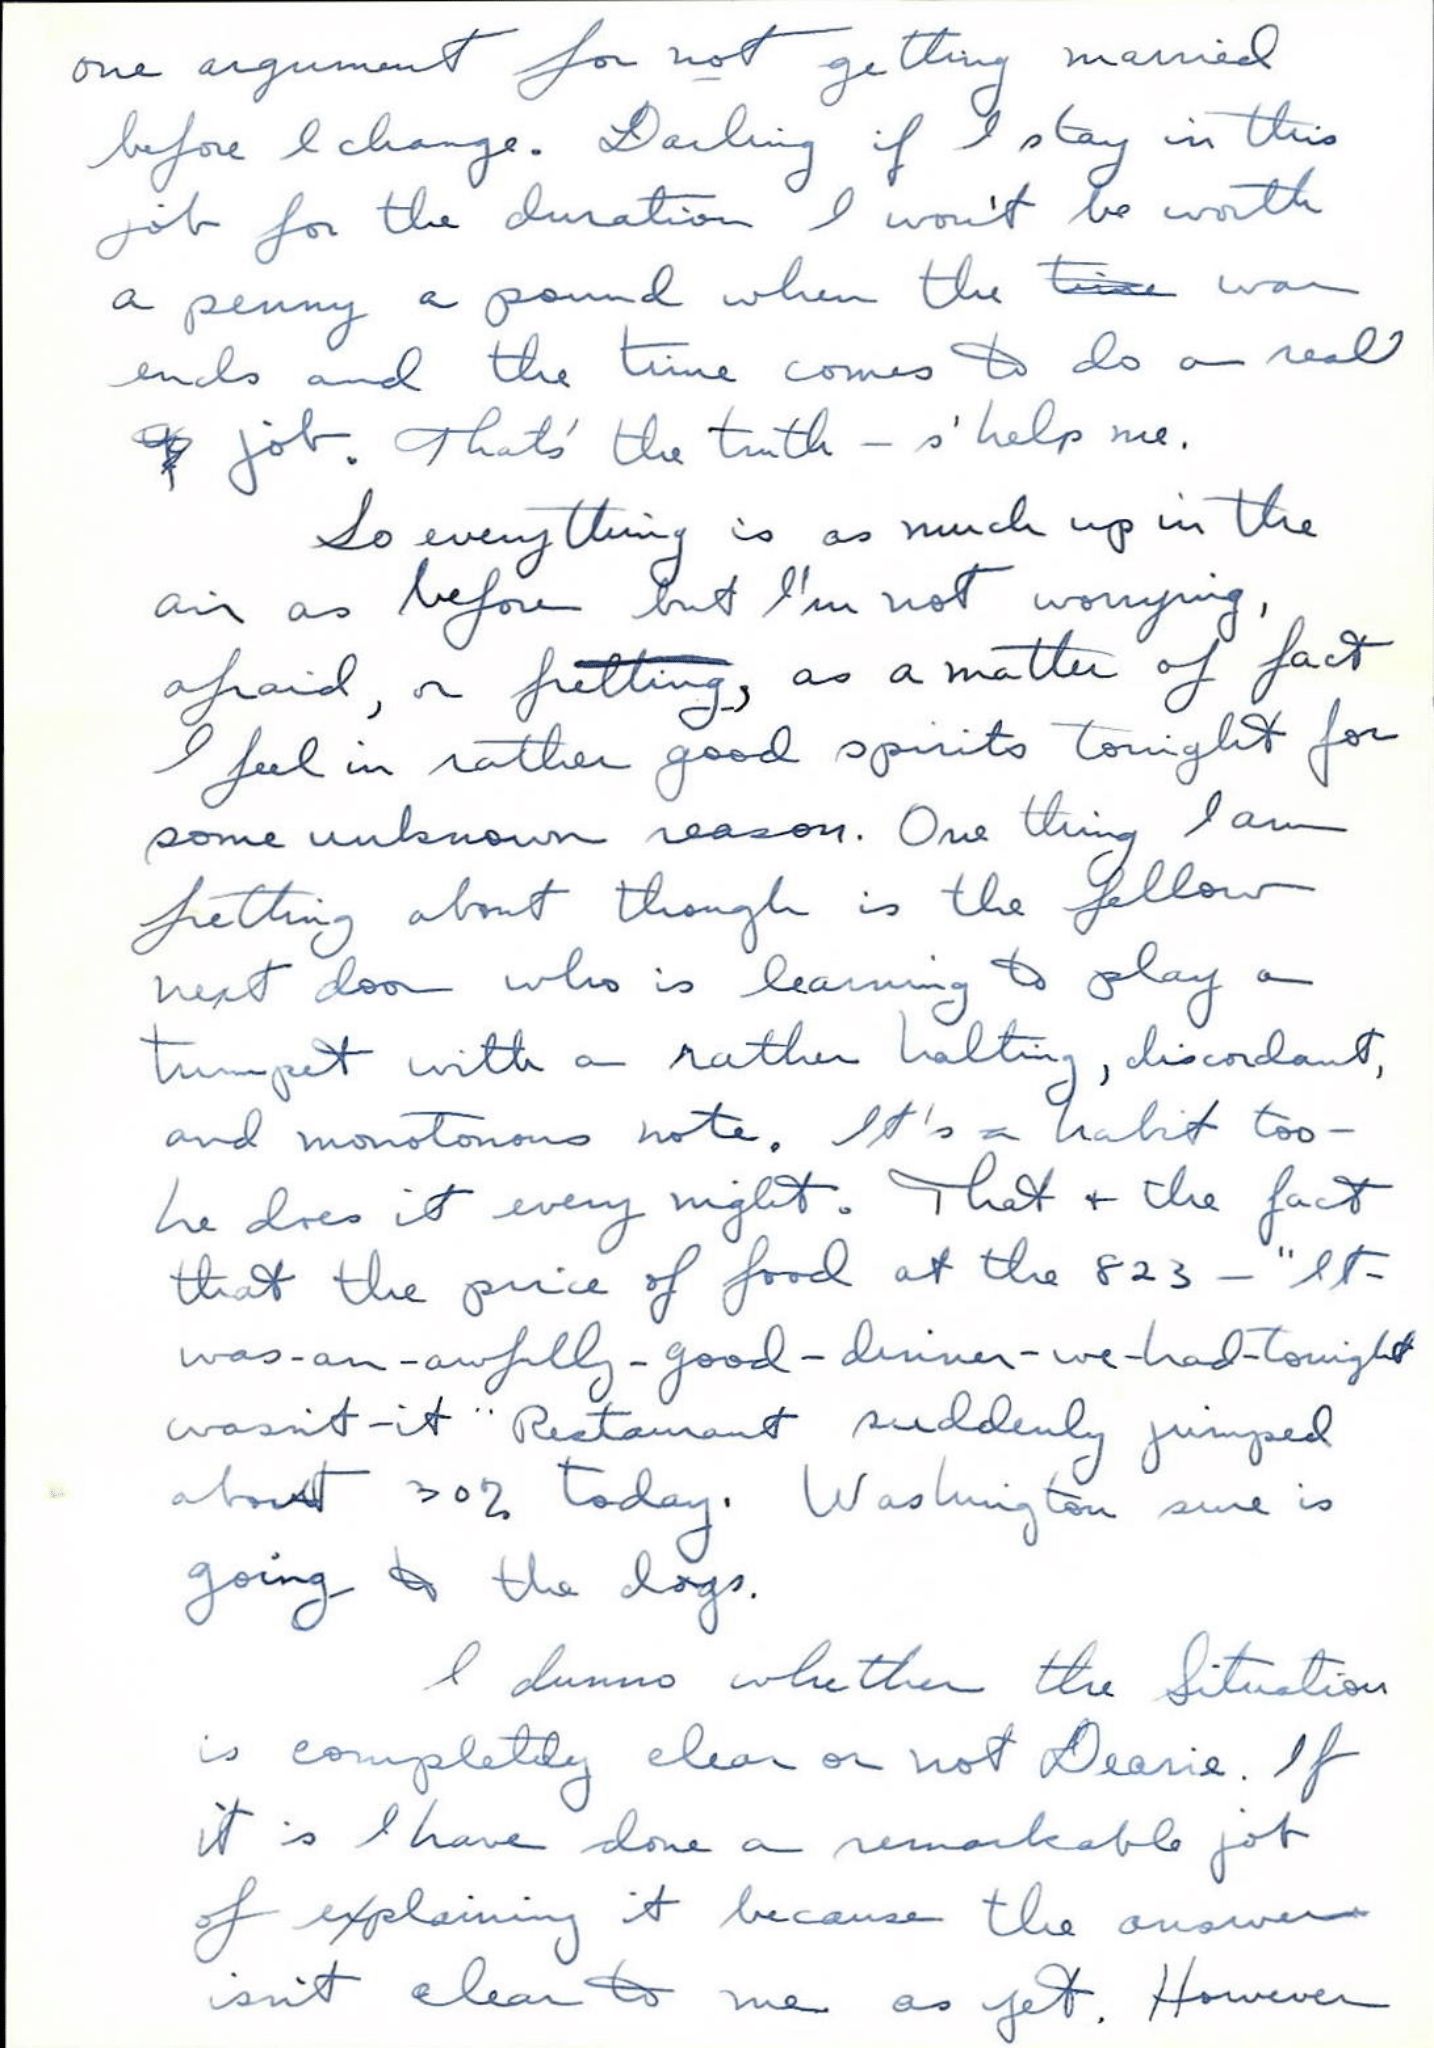 one argument for not getting married
before I change. Darling if I stay in this
job for the duration I won't be worth
a penny a pound when the time war
ends and the time comes to do a real
job. That's the truth – s'help me.
So everything is as much up in the
air as before but I'm not worrying,
afraid, or fretting, as a matter of fact
I feel in rather good spirits tonight for
some unknown reason. One thing I am
fretting about though is the fellow
next door who is learning to play a
trumpet with a rather halting, discordant,
and monotonous note. It's a habit too –
he does it every night. That + the fact
that the price of food at the 823 – "It-
was-an-awfully-good-dinner-we-had-tonight
wasn't-it" Restaurant suddenly jumped
about 30% today. Washington sure is
going to the dogs.
I dunno whether the Situation
is completely clear or not Dearie. If
it is I have done a remarkable job
of explaining it because the answer
isn't clear to me as yet. However